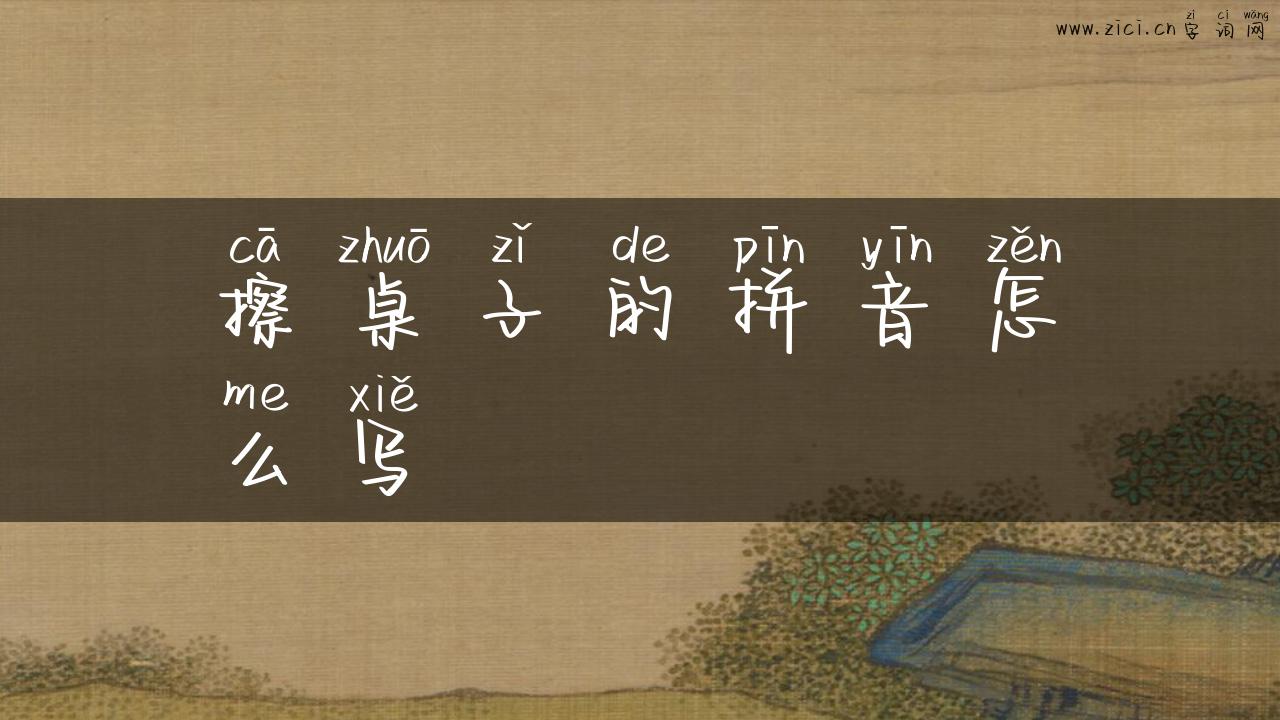 zì cí wǎng
www.zici.cn 字词网
cā zhuō zǐ de pīn yīn zěn
擦桌子的拼音怎
me xiě
么写